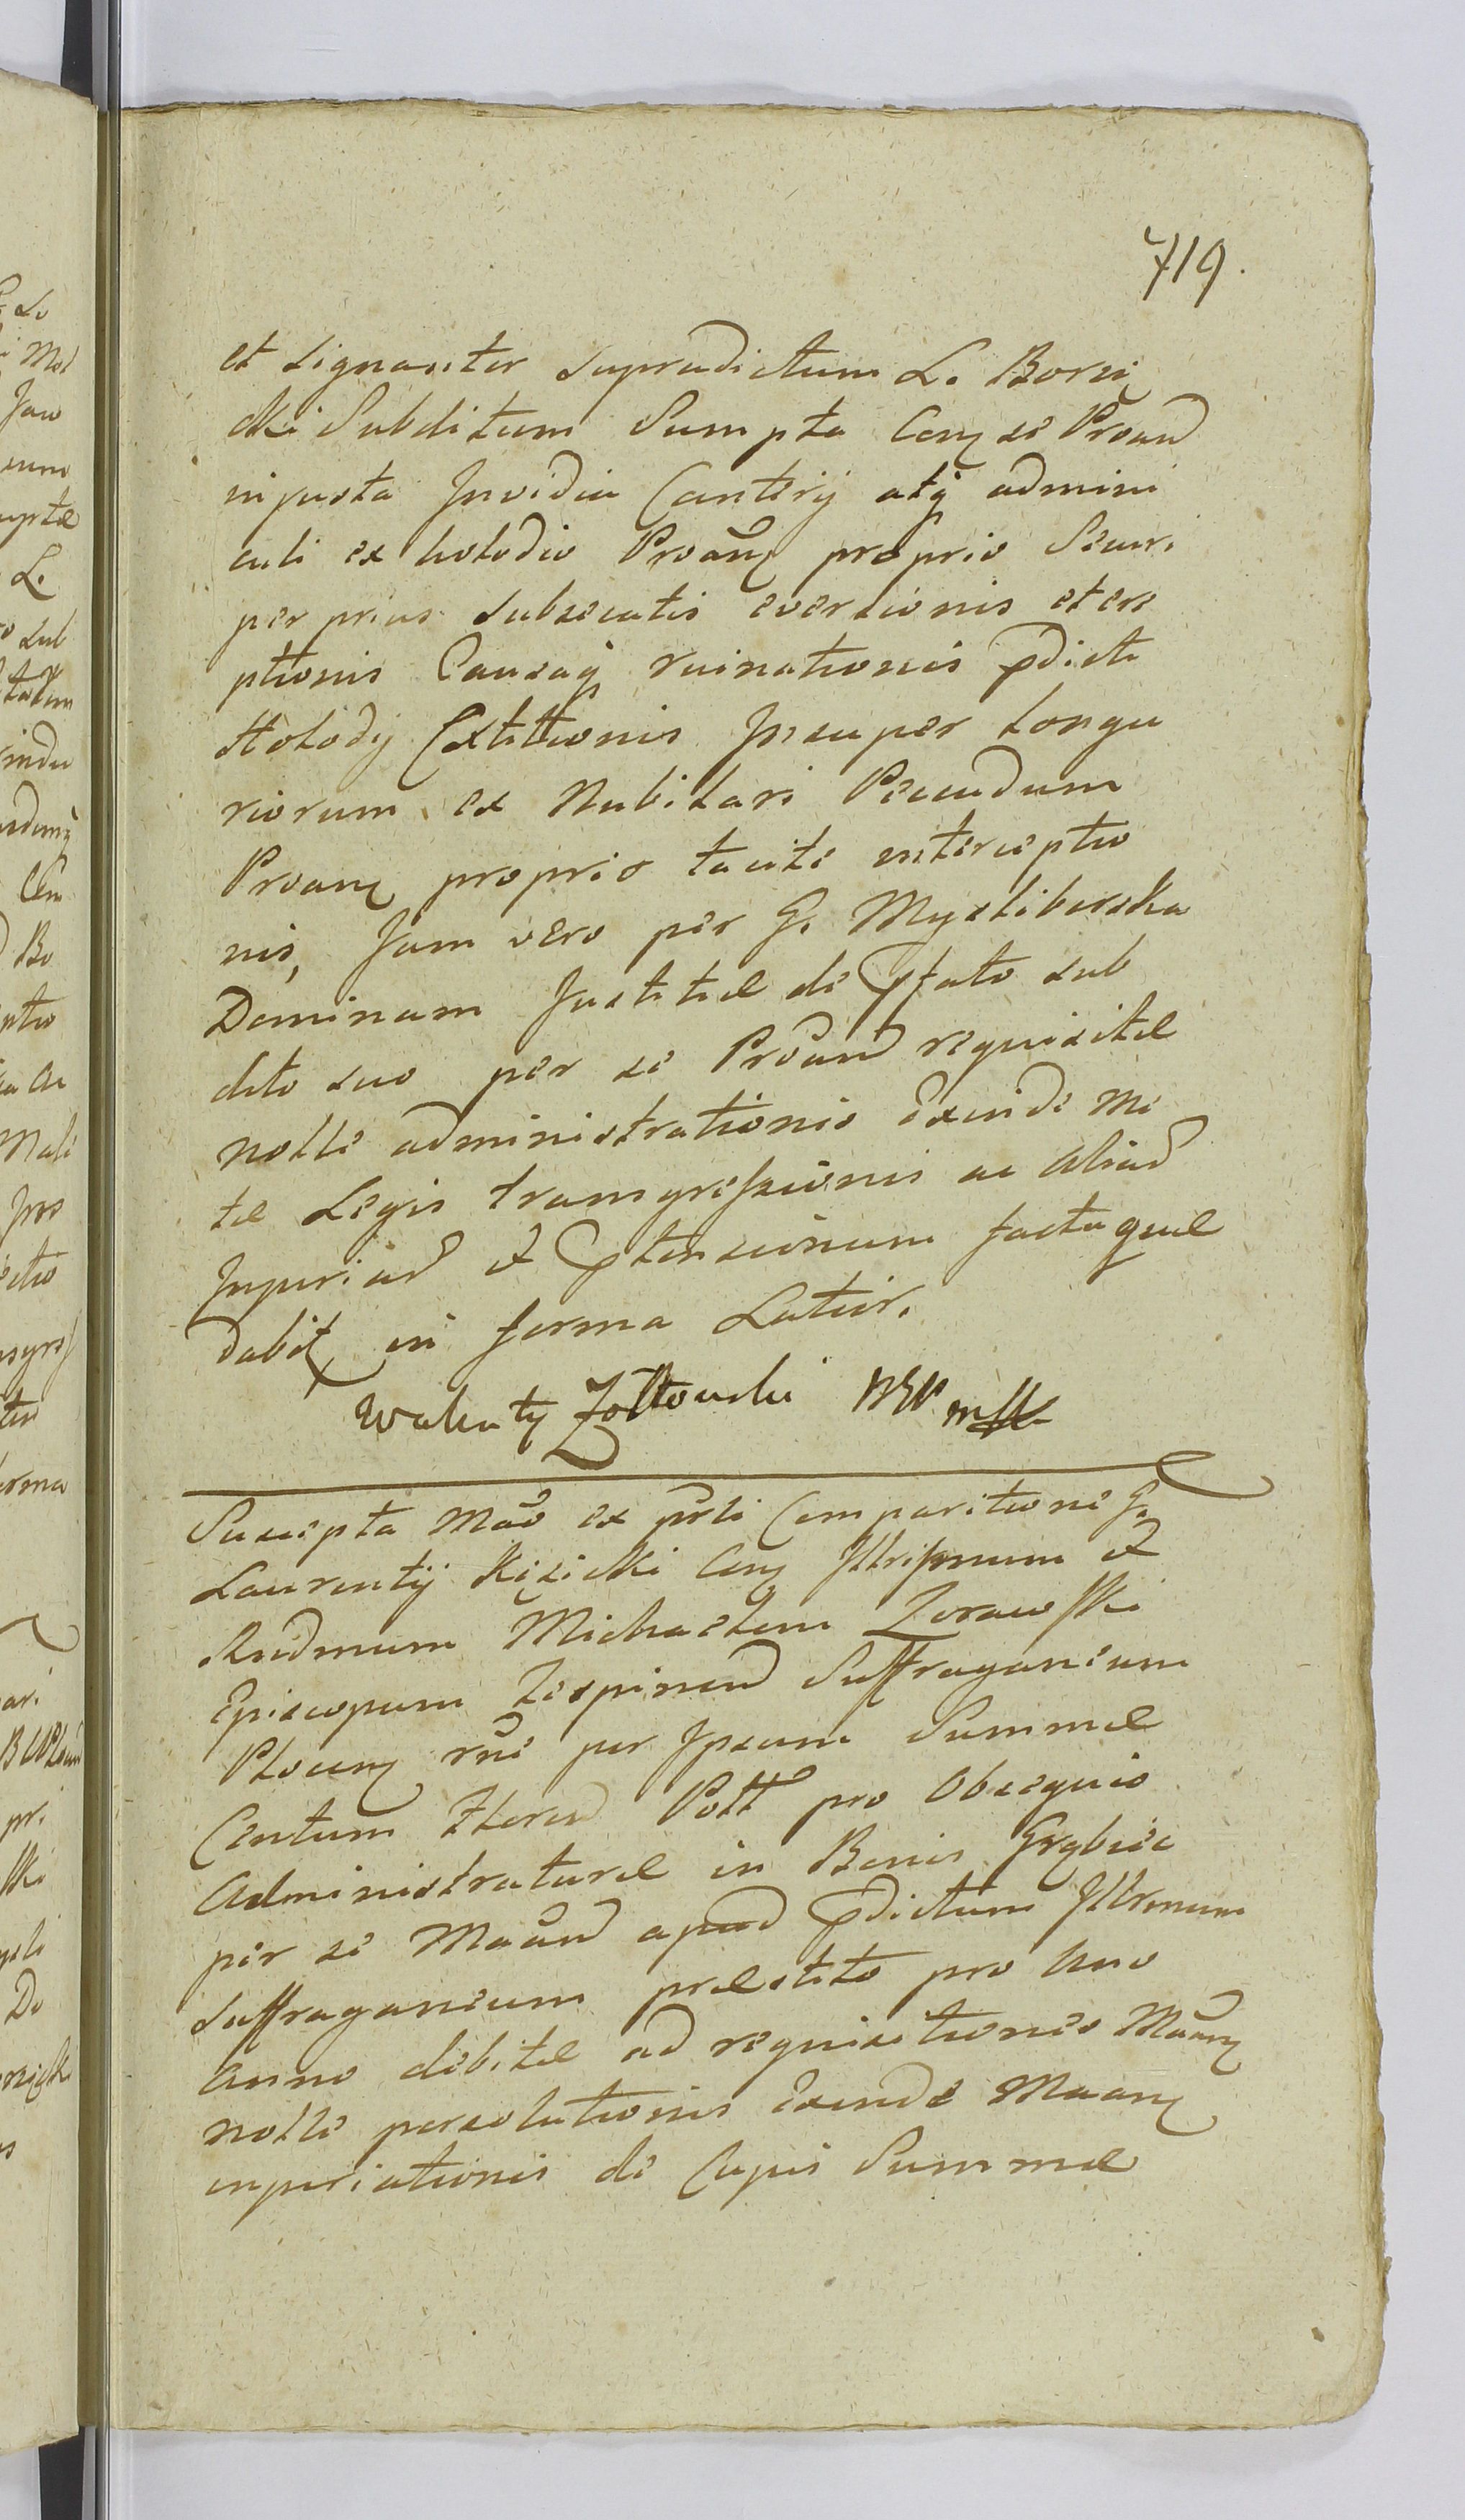 719.
et signanter supradictum L. Borzi
cki Subditum Sumpta Conz se Proand
injusta Invidia Canterij atq admini
culi ex holodio Proanz proprio Secur.
per prius subsecutis eversionis et ere
ptionis Causaq ruinationis pdicti
Holodij Extitionis Insuper Longu
riorum ex Nubilari Pecudum
Proanz proprio tacite interceptio
nis, Jam vero per G. Mysliborska
Dominam Justitiæ de pfato sub
dito suo per se Proand requisitæ
nolle administrationis exinde mi
tæ Legis transgressionis ac aliad
Injuriad et ptensionum facta quæ
dabit in forma Latior.
Walenty Zołtowski BGP mpp
Suscepta Mão ex prli Comparitione G.
Laurentij Kisicki Conz Illrissmum et
Rndmum Michaelem Zorawski
Episcopum Suffraganeum
Plocenz rne per Ipsum Summæ
Centum Floren Poll pro Obsequio
Administraturæ in Bonis Grzbiec
per se Maand apud pdictum Illrmum
Suffraganeum præstito pro Uno
Anno debitæ ad requisitiones Maanz
nolle persolutionis Exinde Maanz
injuriationis de Cujus Summæ